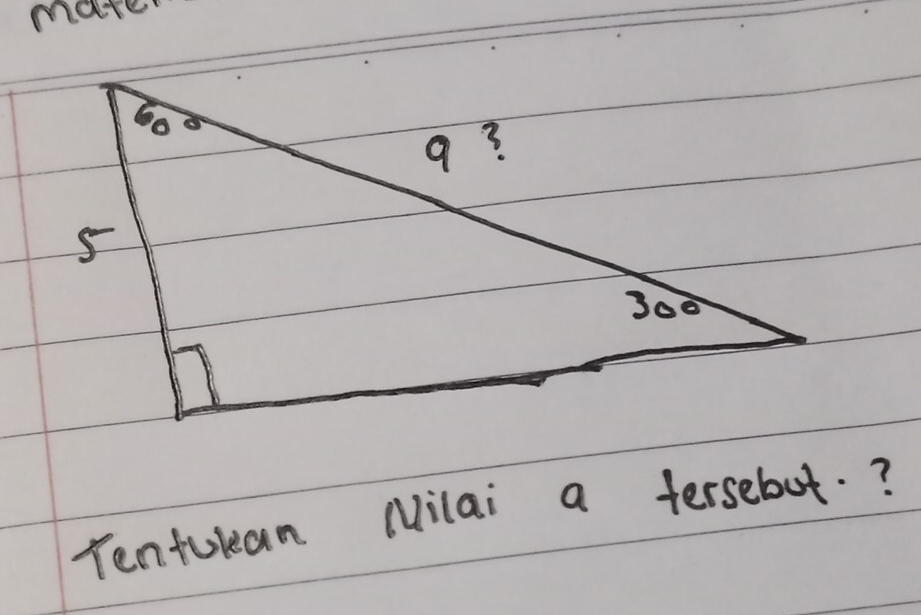 60°
a ?
5
30°
Tentukan Nilai a tersebut. ?